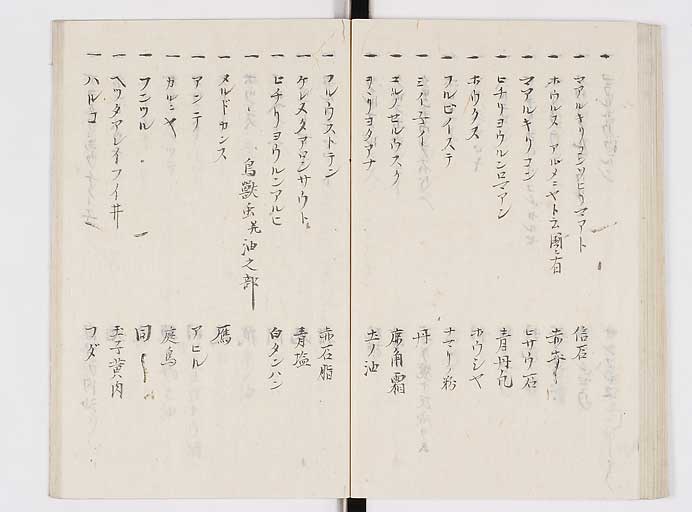 一 マアルキリコンソヒリマアト 信石
一 ホウルス アルメニヤト云國ニ有 赤土
一 マアルキリコン ヒサウ石
一 ヒチリヨウルンロマアン 青丹礬
一 ホウクス ホウシヤ
一 フルビイステ ナマリノ粉
一 ミイ子イ 丹
一 エルノセルウスク 席角霜
一 ヲヽリヨクアナ 土ノ油
一 フルウストテン 赤石脂
一 ケレスタアロンサウト 青塩
一 ヒチリヨウルンアルヒ 白タンハン
鳥獣虫
油之部
一 メルドカンス 鴈
一 アンテ アヒル
一 カルニヤ 庭鳥
一 フンウル 同
一 ヘウタアレイフイ井 玉子黄肉
一 ハルコ フダ